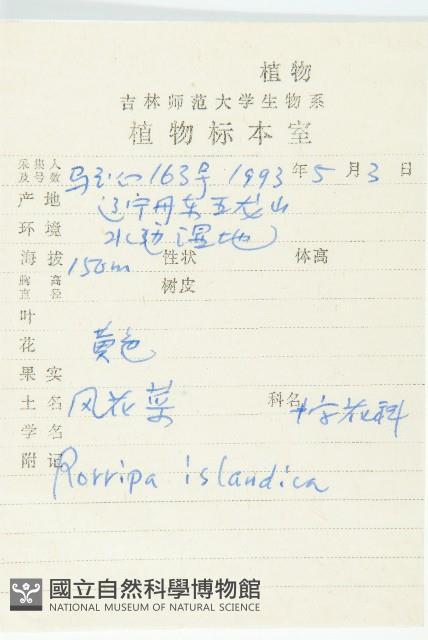 植物
吉林师范大学生物系
植物标本室
采集人及号数 163号 1993年5月3日
产地 辽宁丹东五龙山
环境 湿地
海拔 150m 性状 体高
胸高直径 树皮
叶
花 黄色
果实
土名 风花菜 科名 十字花科
学名
附记 Rorripa islandica
國立自然科學博物館
NATIONAL MUSEUM OF NATURAL SCIENCE